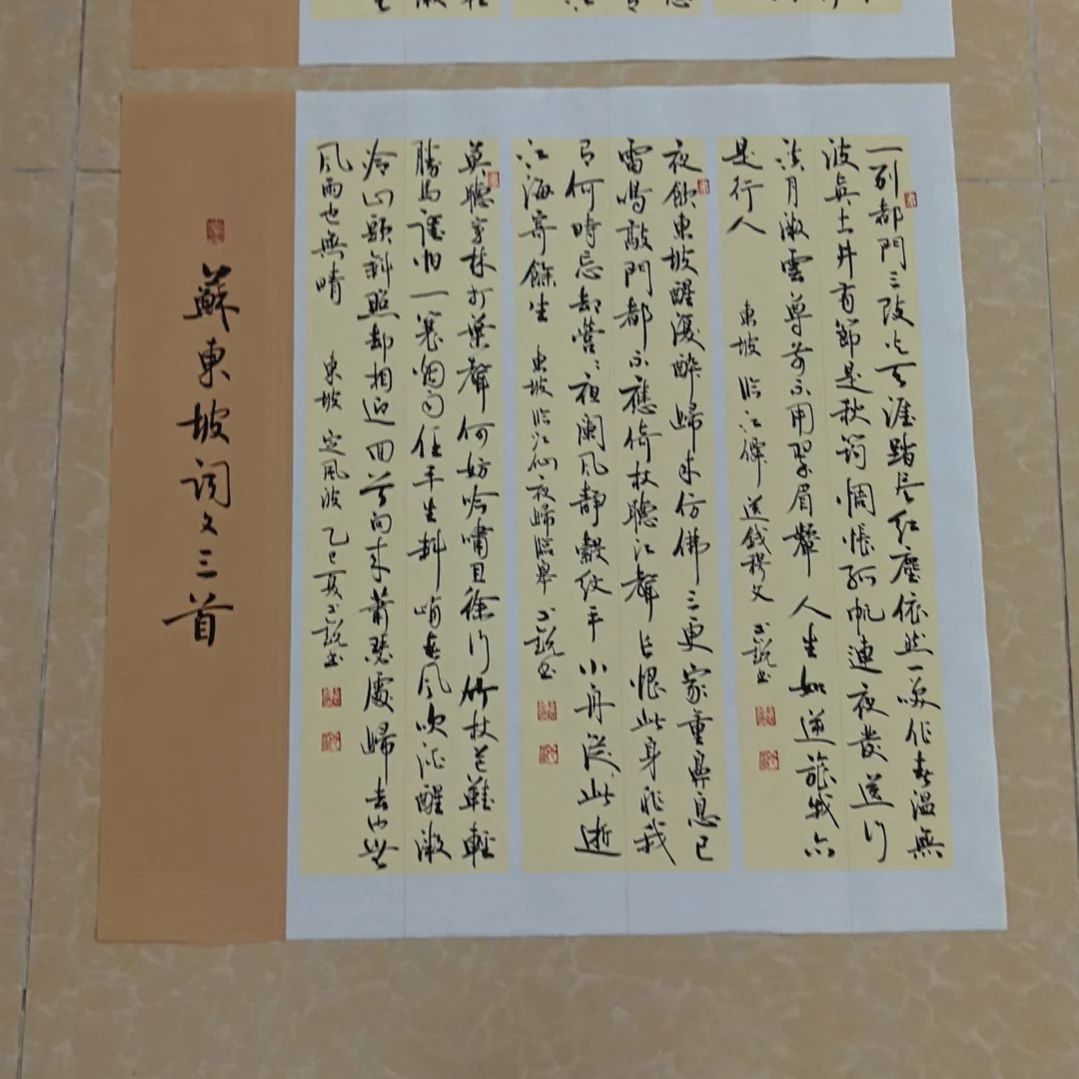 一别都門三改火天涯踏尽红塵依然一笑作春温無
波真古井有節是秋筠惆悵孤帆連夜發送行
淡月微雲尊前不用翠眉顰人生如逆旅我亦
是行人 東坡 临江僊 送錢穆父
夜飲東坡醒復醉歸来仿佛三更家童鼻息已
雷鳴敲門都不應倚杖聽江聲長恨此身非我
有何時忘却營々夜闌风静縠纹平小舟從此逝
江海寄餘生 東坡临江仙夜歸臨皋
莫聽穿林打葉聲何妨吟嘯且徐行竹杖芒鞋輕
勝馬誰怕一蓑烟雨任平生料峭春风吹酒醒微
冷山頭斜照却相迎回首向来蕭瑟處歸去也無
风雨也無晴 東坡 定風波 乙巳夏
蘇東坡词文三首